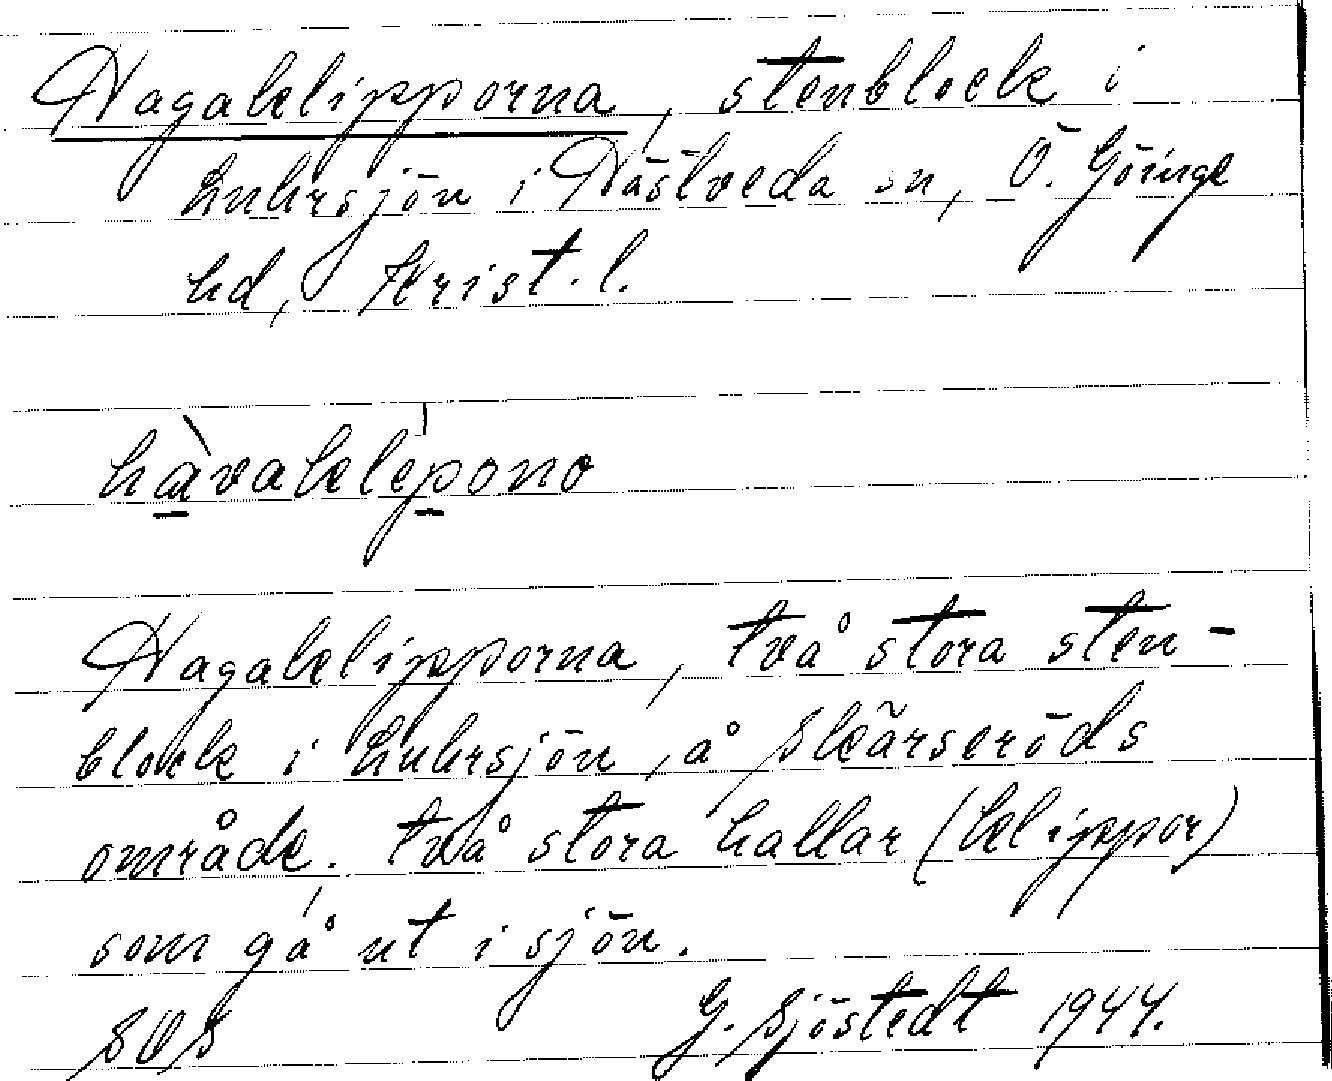 Hagaklipporna, stenblock i
Luhrsjön i Hästveda sn, Ö. Göinge
hd, Krist. l.
hàvaklepono
Hagaklipporna, två stora sten-
block i Luhrsjön, å Skärseröds
område. två stora hallar (klippor)
som gå ut i sjön.
SOS G. Sjöstedt 1944.